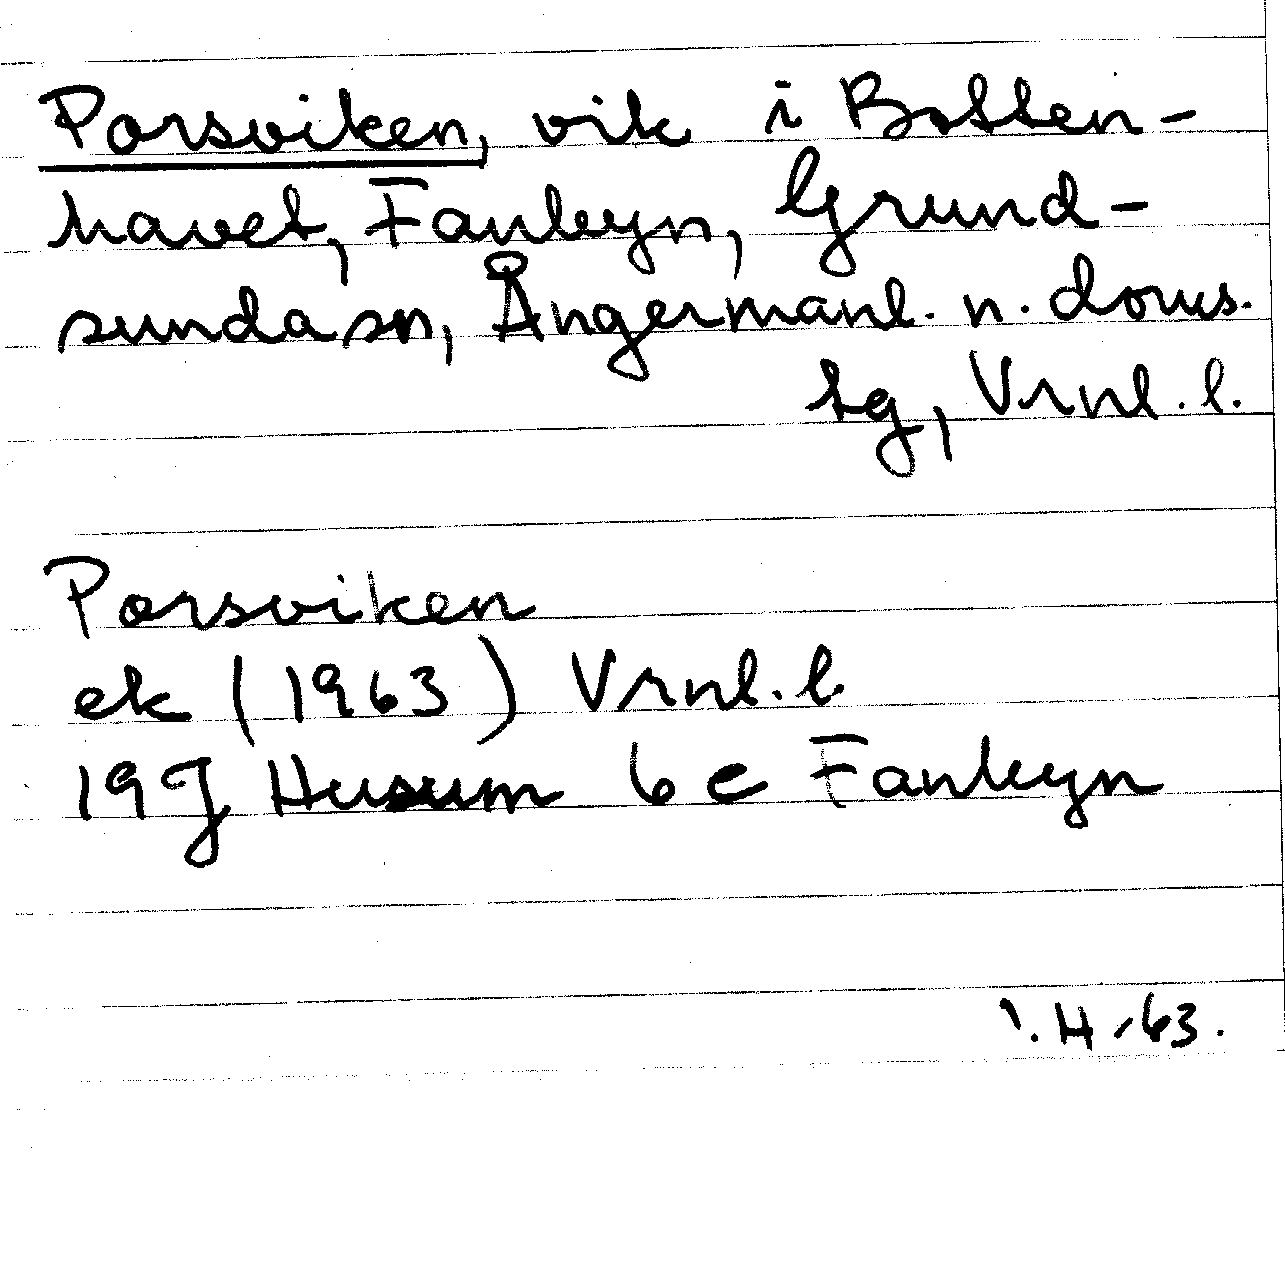 Porsviken, vik i Botten-
havet, Fanbyn, Grund-
sunda sn, Ångermanl. n. doms.
tg, Vrnl. l.
Porsviken
ek (1963) Vrnl. l.
19J Husum 6e Fanbyn
H -63.